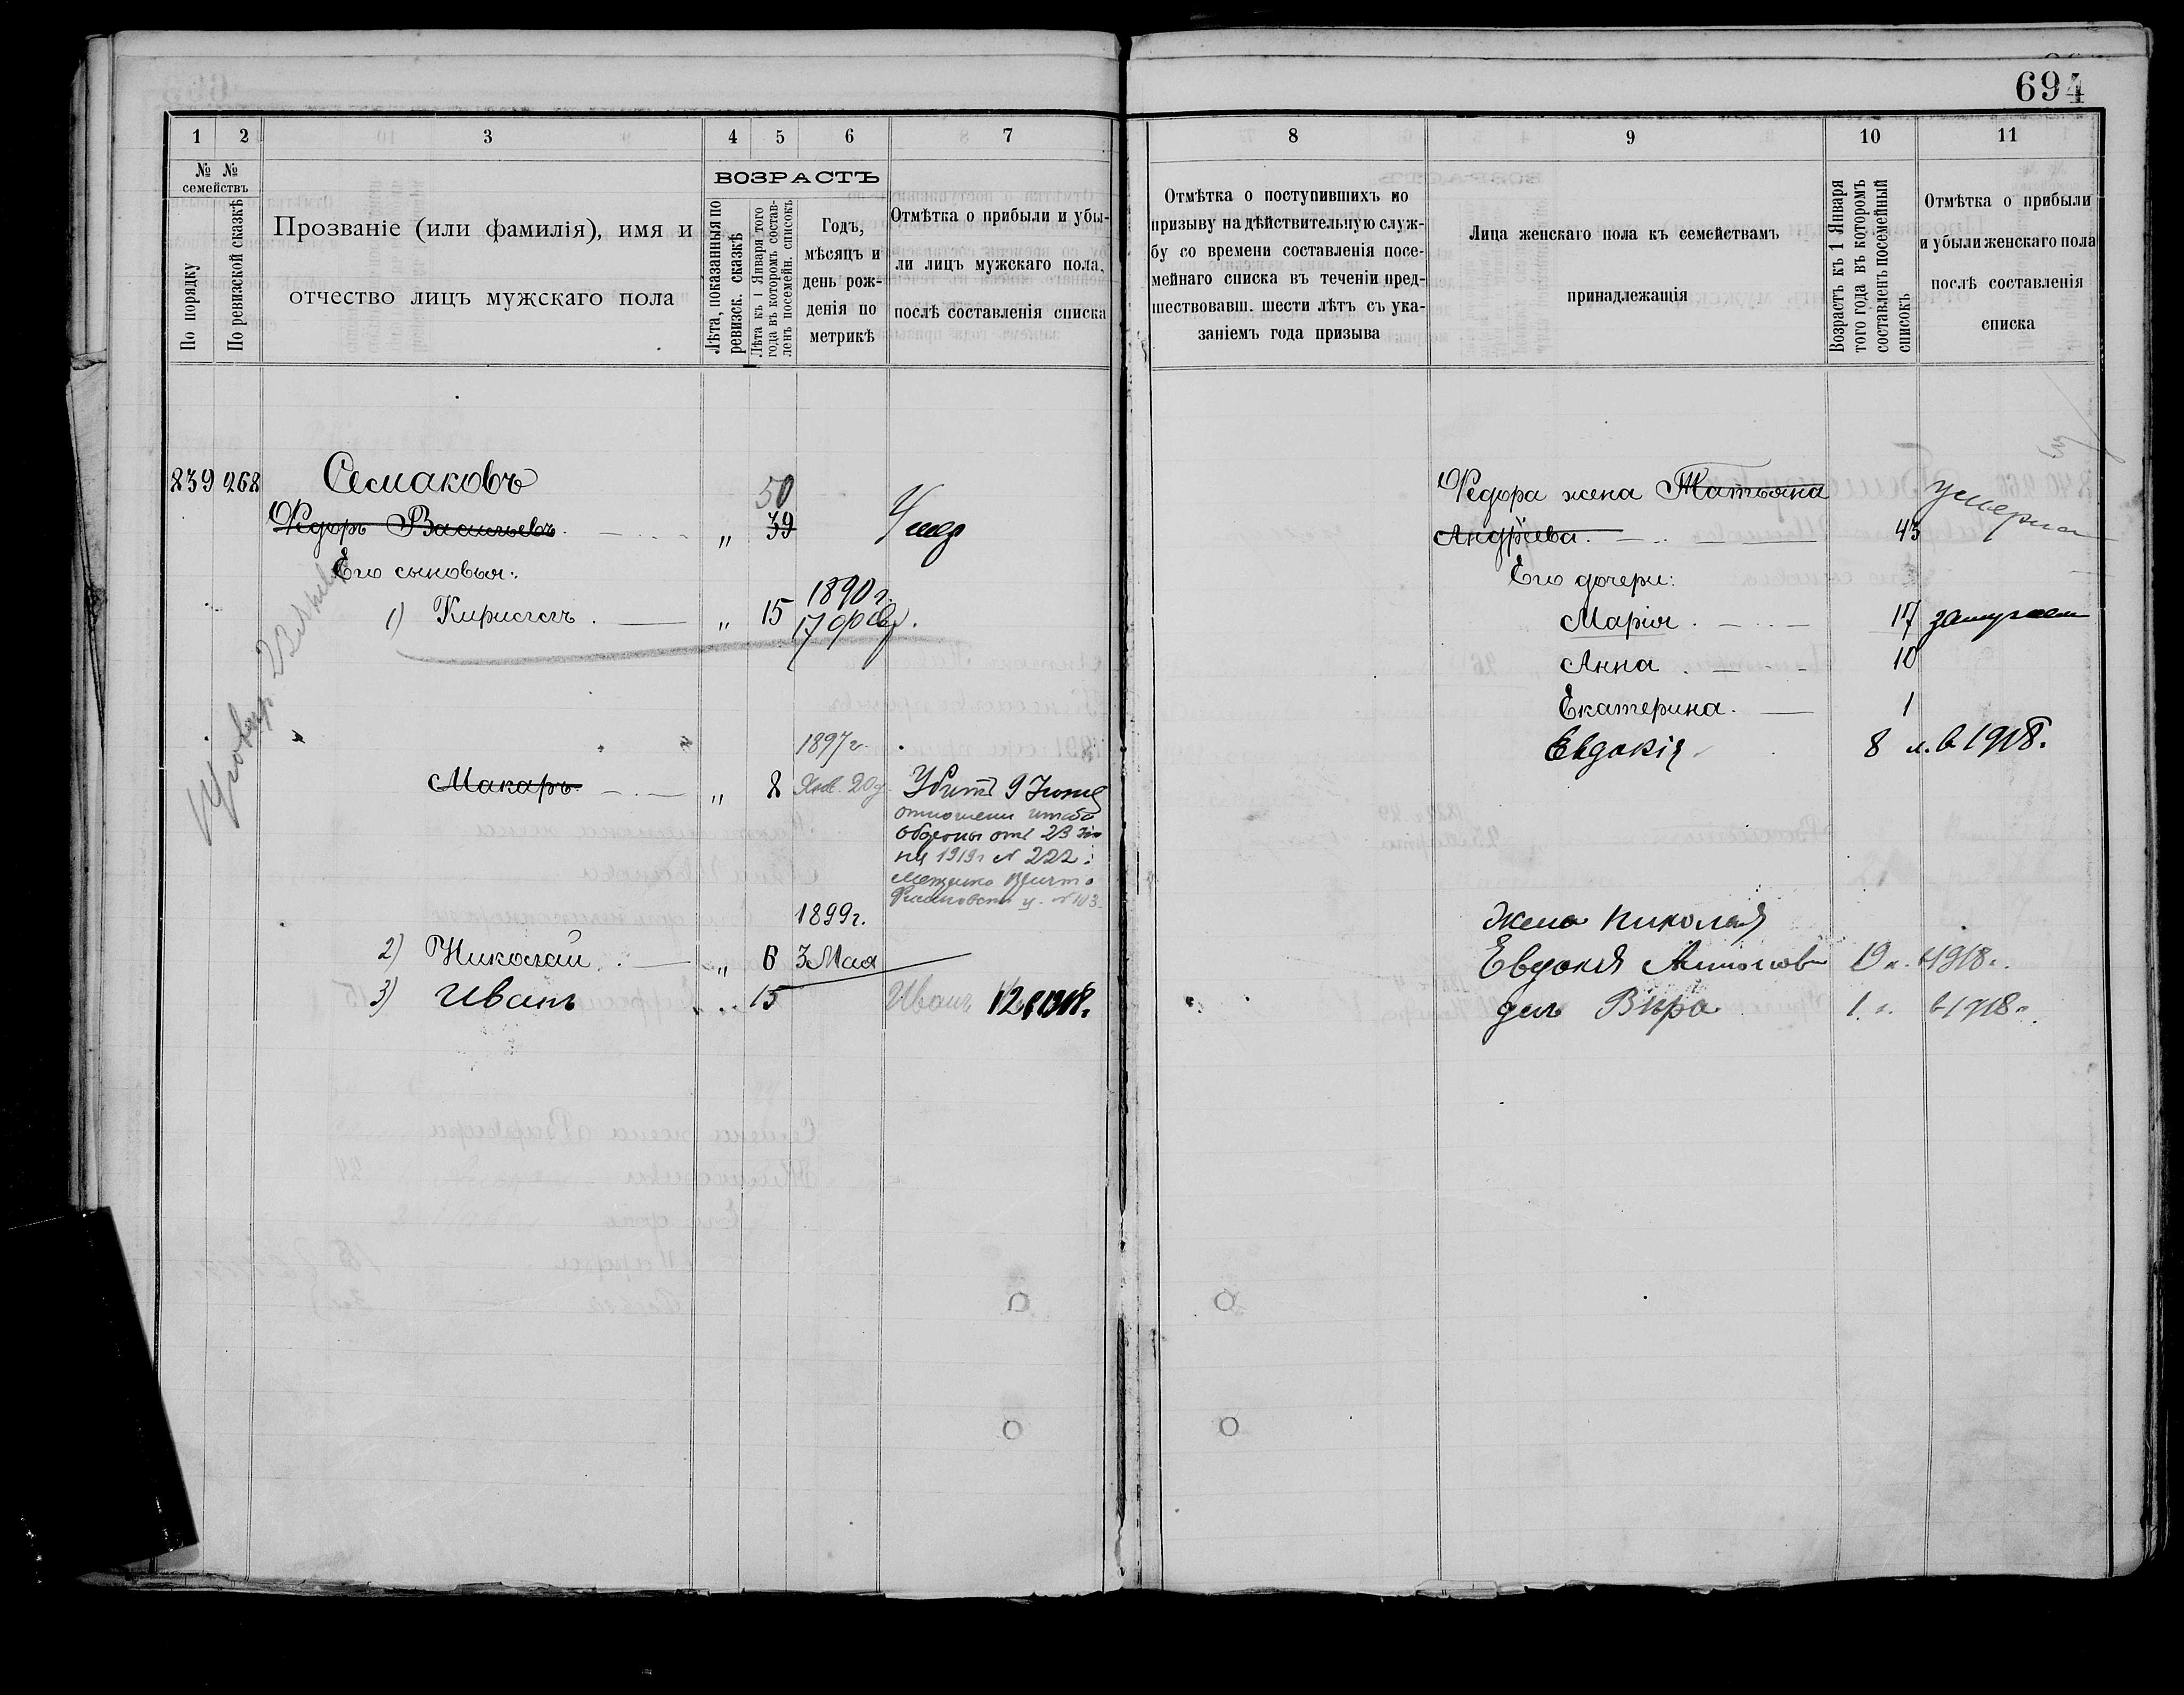 694
1 2 3 4 5 6 7
№ № семействъ
По порядку
По ревизской сказкѣ
Прозваніе (или фамилія), имя и
отчество лицъ мужскаго пола
ВОЗРАСТЪ
Лѣта, показанныя по
ревизск. сказкѣ
Лѣта къ 1 Января того
года въ которомъ состав-
ленъ посемейн. списокъ
Годъ,
мѣсяцъ и
день рож-
денія по
метрикѣ
Отмѣтка о прибыли и убы-
ли лицъ мужскаго пола,
послѣ составленія списка
839 268 Семаковъ
50
Ѳедоръ Васильевъ „ 39 Умер
Его сыновья:
1890 г.
1) Кириллъ „ 15 17 февр.
1897 г.
Макаръ „ 8 Янв. 20 д. Убитъ 9 Июня
отношени штаба
обороны отъ 23 Iю
ня 1919 г № 222
1899 г.
2) Николай „ 6 3 Мая
3) Иванъ 15 Иванъ 12 в 1918.
8 9 10 11
Отмѣтка о поступившихъ по
призыву на дѣйствительную служ-
бу со времени составленія посе-
мейнаго списка въ теченіи пред-
шествовавш. шести лѣтъ съ ука-
заніемъ года призыва
Лица женскаго пола къ семействамъ
принадлежащія
Возрастъ къ 1 Января
того года въ которомъ
составленъ посемейный
списокъ
Отмѣтка о прибыли
и убыли женскаго пола
послѣ составленія
списка
Ѳедора жена Татьяна
Андрѣева. 43 умерла
Его дочери:
Марія 17 замужем
Анна 10
Екатерина 1
Евдокія 8 л. в 1918.
Жена Николая
Евдокія 19 л. в 1918 г.
доч Вѣра 1 г. в 1918 г.